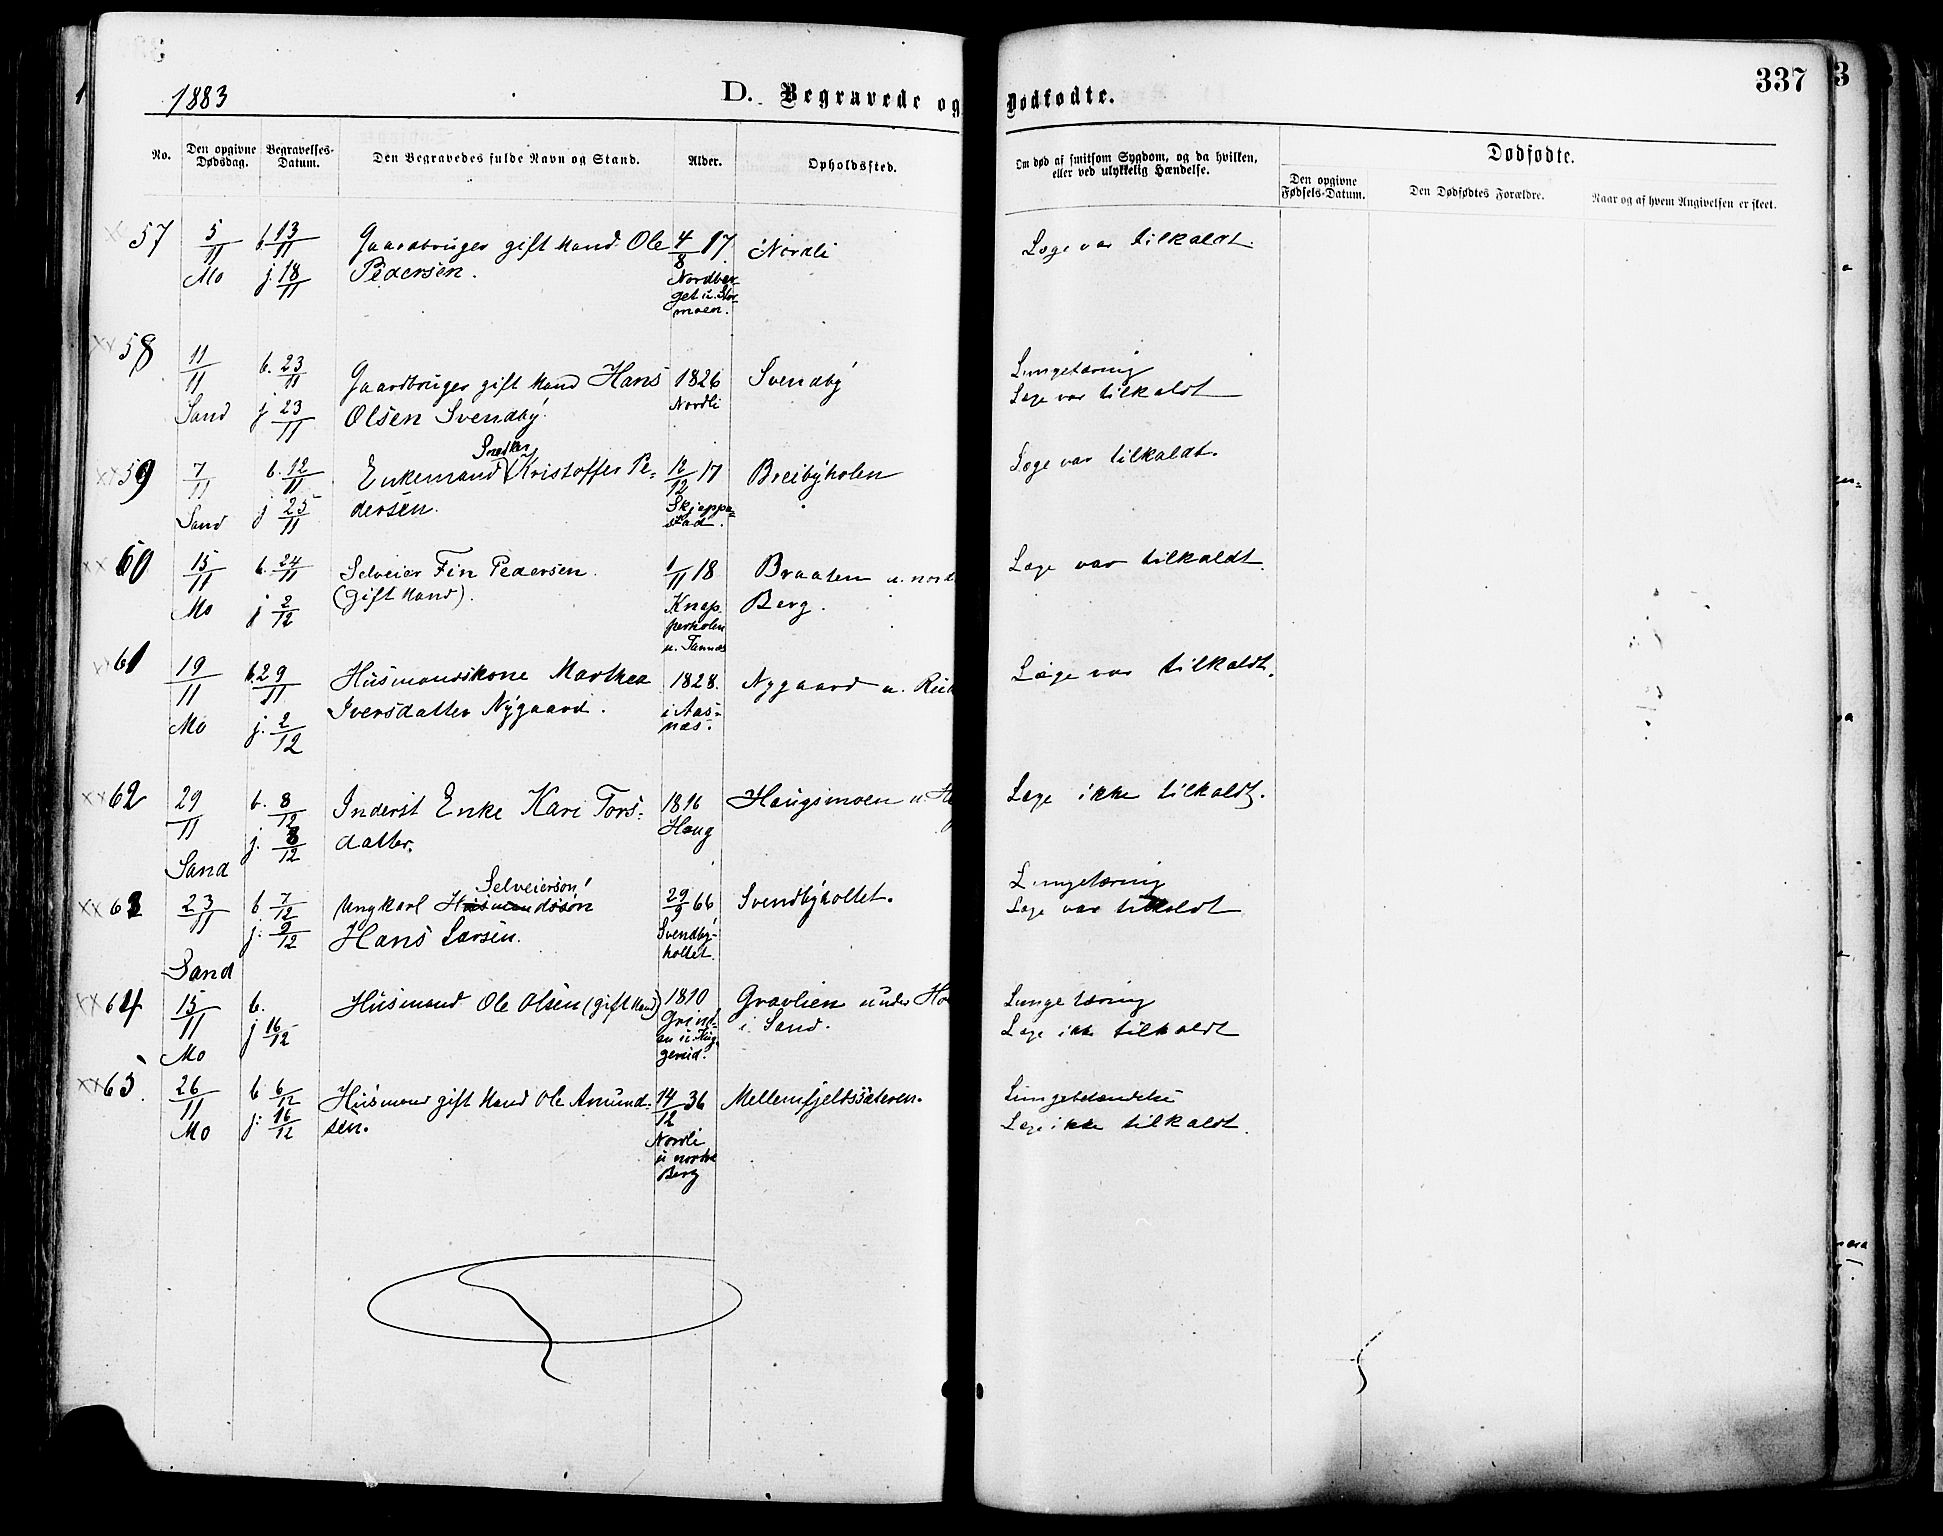 1883
D. Begravede og Dødfødte.
337
No.
Den opgivne Dødsdag.
Begravelses-Datum.
Den Begravedes fulde Navn og Stand.
Alder.
Opholdssted.
Om død af smitsom Sygdom, og da hvilken, eller ved ulykkelig Hændelse.
Dødfødte.
Den opgivne Fødsels-Datum.
Den Dødfødtes Forældre.
Naar og af hvem Angivelsen er skeet.
57 5/11 b. 13/11 Gaardbruger gift Mand Ole 4/8 17 Nordli Læge var tilkaldt.
Mo j. 18/11 Pedersen. Nordber-
get u. Stor-
moen.
58 11/11 b. 23/11 Gaardbruger gift Mand Hans 1826 Svendby Lungetæring
Sand j. 23/11 Olsen Svendby. Nordli Læge var tilkaldt
59 7/11 b. 12/11 Enkemand Kristoffer Pe- 12/12 17 Breibyholen Læge var tilkaldt.
Sand j. 25/11 dersen. Skjeppe-
stad.
60 15/11 b. 24/11 Selveier Fin Pedersen. 1/11 18 Braaten u. nord Læge var tilkaldt.
Mo j. 2/12 (gift Mand). Knap- Berg.
perholen
u. Tannæs
61 19/11 b. 29/11 Husmandskone Marthea 1828. Nygaard u. Læge var tilkaldt.
Mo j. 2/12 Iversdatter Nygaard. i Aas-
næs.
62 29/11 b. 8/12 Inderst Enke Kari Tors- 1816 Haugsmoen u. Læge ikke tilkaldt.
Sand j. 8/12 datter. Haug
63 23/11 b. 7/12 Ungkarl Husmandssøn Selveiersøn 29/9 66 Svendbyholtet. Lungetæring
Sand j. 9/12 Hans Larsen. Svendby-
holtet. Læge var tilkaldt
64 15/11 b. Husmand Ole Olsen (gift Mand) 1810 Gravlien under Lungetæring
Mo j. 16/12 i Sand. Læge ikke tilkaldt
65. 26/11 b. 6/12 Husmand gift Mand Ole Amund- 14/12 36 Mellemfjeldssæteren. Lungebetændelse
Mo j. 16/12 sen. Nordli Læge ikke tilkaldt.
u nordre
Berg